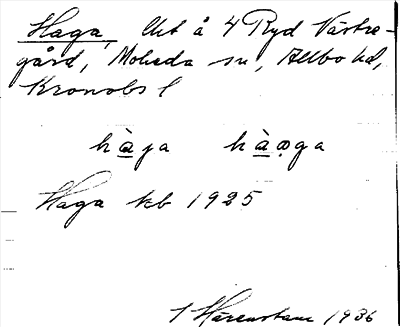 Haga, Utt å 4 Ryd Västre-
gård, Moheda sn, Allbo hd,
Kronobs l
hàga hàọga
Haga kb 1925
Härenstam 1936